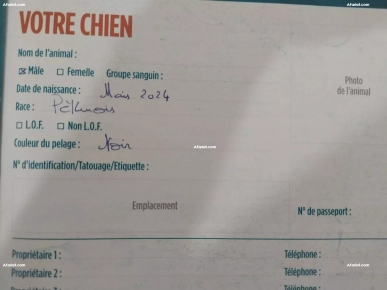 Afariat.com
VOTRE CHIEN
Nom de l'animal :
☒ Mâle ☐ Femelle Groupe sanguin :
Date de naissance : Mais 2024
Race : Pékinois
☐ L.O.F. ☐ Non L.O.F.
Couleur du pelage : Noir
N° d'identification/Tatouage/Etiquette :
Photo
de l'animal
Emplacement
N° de passeport :
Propriétaire 1 : Téléphone :
Propriétaire 2 : Téléphone :
Téléphone :